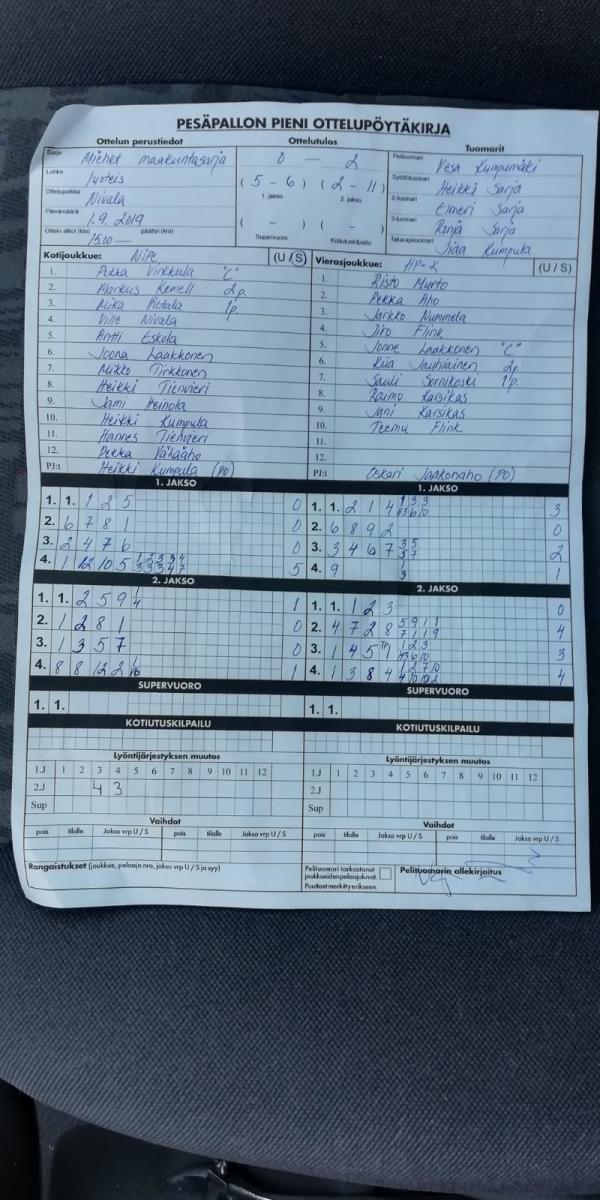 PESÄPALLON PIENI OTTELUPÖYTÄKIRJA
Ottelun perustiedot Ottelutulos Tuomarit
Sarja Miehet maakuntasarja 0 — 2 Pelituomari Vesa Kumpumäki
Lohko Syöttötuomari Heikki Sarja
Ottelupaikka Nivala (5 - 6) (2 - 11) 2-tuomari Elmeri Sarja
1. jakso 2. jakso 3-tuomari Ronja Sarja
Päivämäärä 1.9.2019 ( - ) ( - ) Takarajatuomari Iida Kumpula
Ottelu alkoi (klo) 15.00 — päättyi (klo) Supervuoro Kotiutuskilpailu
Kotijoukkue: NiPe (U / S) Vierasjoukkue: HP-K (U / S)
1. Pekka Vinkkula "C" 1. Risto Murto
2. Markus Kemell 2p. 2. Pekka Aho
3. Mika Pietala 1p. 3. Jarkko Nummela
4. Ville Nivala 4. Jiro Flink
5. Antti Eskola 5. Jonne Laakkonen "C"
6. Joona Laakkonen 6. Jauhiainen 2p.
7. Mikko Tirkkonen 7. Sauli Sornikoski 1p.
8. Heikki Tienvieri 8. Raimo Karsikas
9. Jami Heinola 9. Jani Karsikas
10. Heikki Kumpula 10. Teemu Flink
11. Hannes Tienvieri 11.
12. Pekka Vähäaho 12.
PJ:t Heikki Kumpula (PO) PJ:t Oskari Jaakonaho (PO)
1. JAKSO 1. JAKSO
1. 1. 1 2 5 0 1. 1. 2 1 4 3
2. 6 7 8 1 0 2. 6 8 9 2 0
3. 2 4 7 6 0 3. 3 4 6 7 3 5 5 7 2
4. 1 12 10 5 1 2 3 3 4 3 3 3 4 7 5 4. 9 1 3 1
2. JAKSO 2. JAKSO
1. 1. 2 5 9 1 4 1 1. 1. 1 2 3 0
2. 1 2 8 1 0 2. 4 7 2 8 5 9 1 1 7 1 1 9 4
3. 1 3 5 7 0 3. 1 4 5 1 3
4. 8 8 12 2 1 4. 1 3 8 4 4
SUPERVUORO SUPERVUORO
1. 1. 1. 1.
KOTIUTUSKILPAILU KOTIUTUSKILPAILU
Lyöntijärjestyksen muutos Lyöntijärjestyksen muutos
1.J 1 2 3 4 5 6 7 8 9 10 11 12 1.J 1 2 3 4 5 6 7 8 9 10 11 12
2.J 4 3 2.J
Sup Sup
Vaihdot Vaihdot
pois tilalle Jakso vrp U / S pois tilalle Jakso vrp U / S pois tilalle Jakso vrp U / S pois tilalle Jakso vrp U / S
Rangaistukset (joukkue, pelaaja nro, jakso vrp U / S ja syy) Pelituomari tarkastanut joukkueiden pelaajaluvat. Puutteet merkitty erikseen. Pelituomarin allekirjoitus